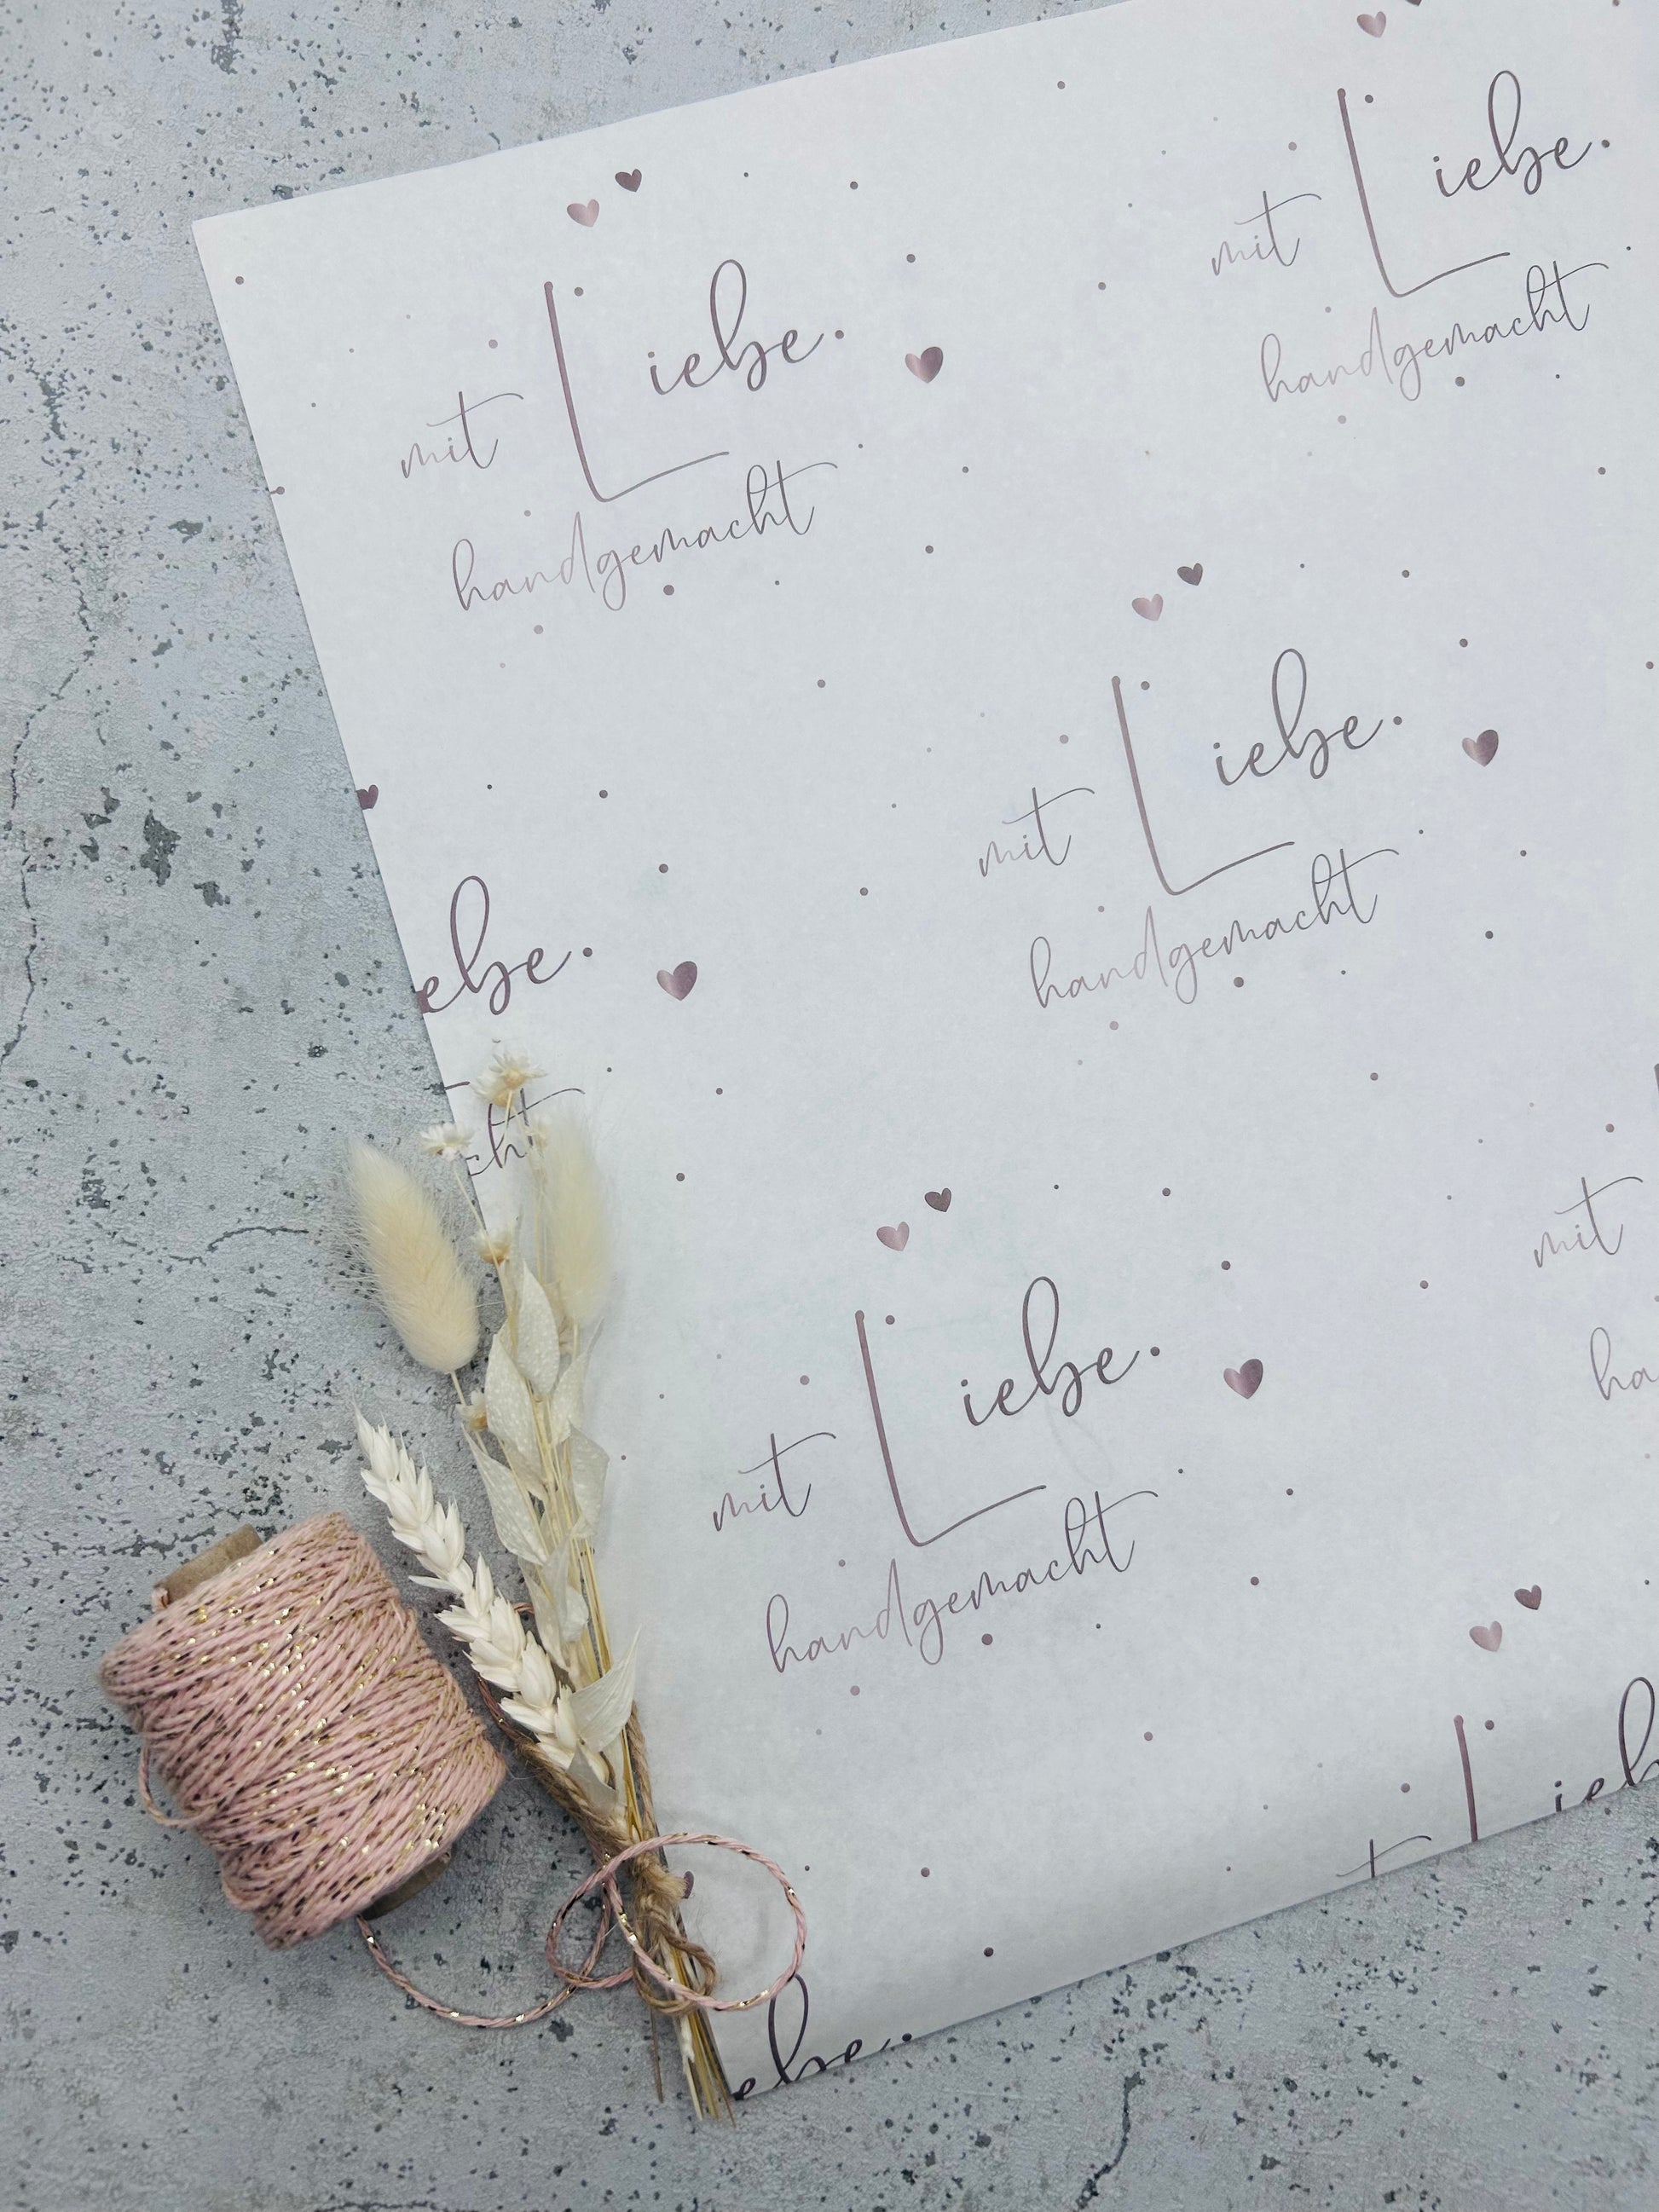 mit Liebe.
handgemacht
mit Liebe.
handgemacht
mit Liebe.
handgemacht
ebe.
cht
mit Liebe.
handgemacht
mit
ha
t Lieb
ebe.